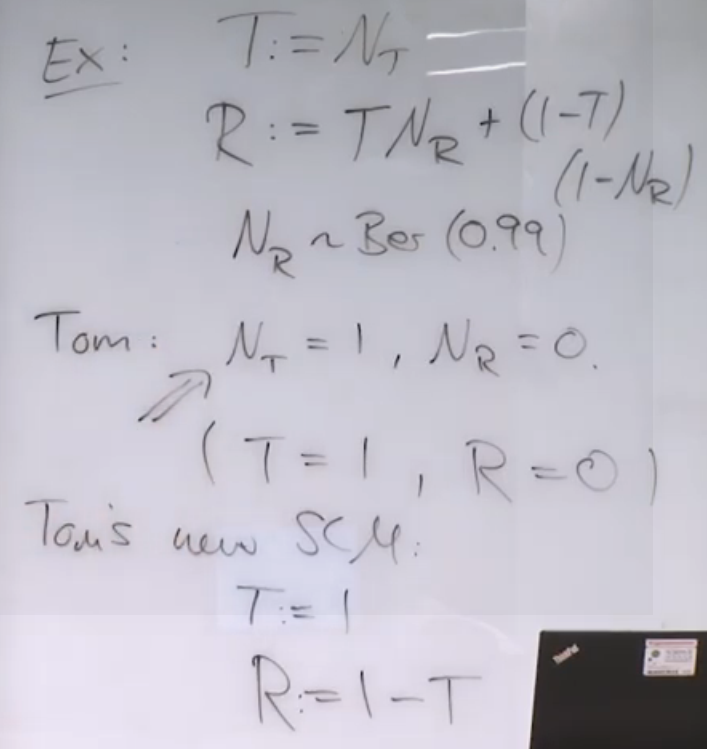 Ex: T := N_T
R := T N_R + (1-T)
(1-N_R)
N_R ~ Ber (0.99)
Tom: N_T = 1, N_R = 0.
(T = 1, R = 0)
Tom's new SCM:
T := 1
R := 1 - T
ThinkPad